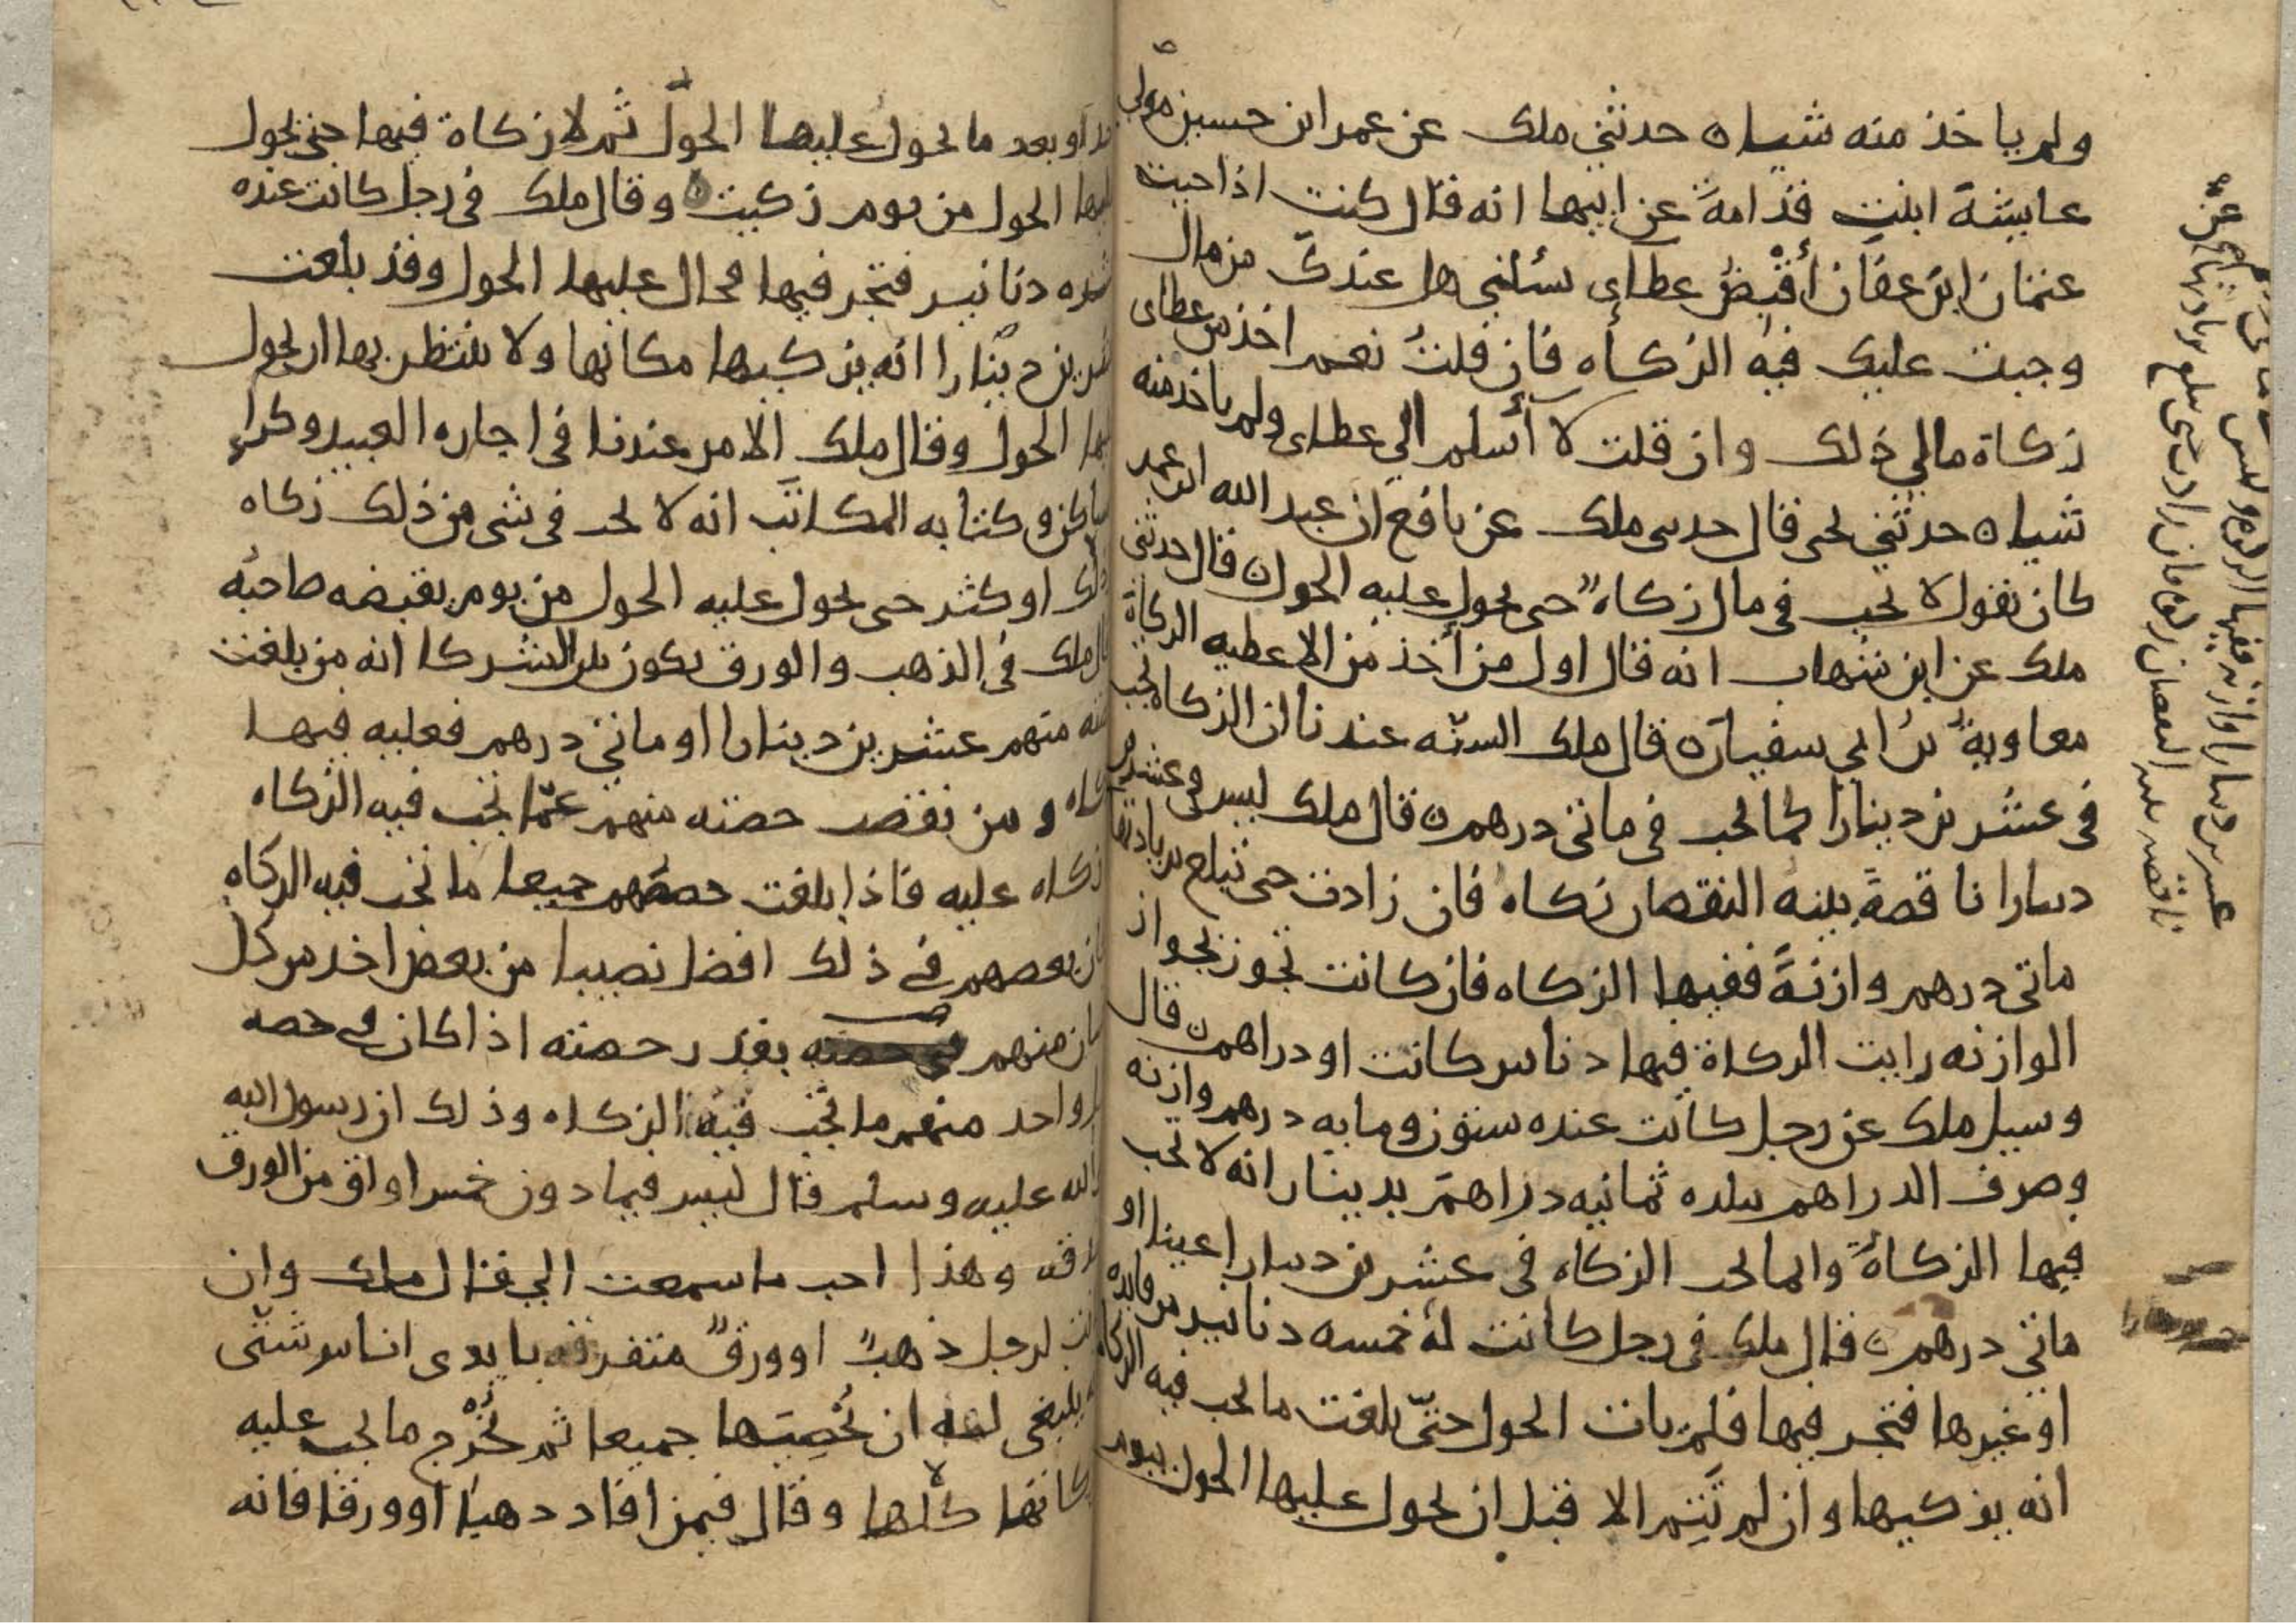 ولم ياخذ منه شياه حدثني ملك عن عمر ابن حسين مولى
عايشة ابنت قدامة عن ابيها انه قال كنت اذا جيت
عثمان ابن عفان أقبض عطاى سئلني هل عندك من مال
وجبت عليك فيه الزكاه فان قلت نعم اخذ من عطاى
زكاة مالي ذلك وان قلت لا أسلم الي عطاى ولم ياخذ منه
شياه حدثني يحى قال حدثنى ملك عن نافع ان عبد الله ابن عمر
كان يقول لا تجب في مال زكاه حتى يحول عليه الحول قال حدثني
ملك عن ابن شهاب انه قال اول من أخذ من الاعطيه الزكاة
معاوية بن ابي سفيان قال ملك السنّه عندنا ان الزكاه تجب
في عشرين دينارا كما تجب في ماتي درهم قال ملك ليس في عشرين
دينارا ناقصة بينه النقصان زكاه فان زادت حتى تبلغ بزيادتها
ماتي درهم وازنة ففيها الزكاه فان كانت تجوز بجواز
الوازنه رايت الزكاة فيها دنانير كانت او دراهم قال
وسيل ملك عن رجل كانت عنده ستون ومايه درهم وازنه
وصرف الدراهم ببلده ثمانيه دراهم بدينار انه لا تجب
فيها الزكاة وانما تجب الزكاه في عشرين دينارا عينا او
ماتي درهم قال ملك في رجل كانت له خمسه دنانير من فايده
او غيرها فتجر فيها فلم يات الحول حتّى بلغت ما تجب فيه الزكاه
انه يزكيها وان لم تتم الا قبل ان يحول عليها الحول بيوم
عشرين دينارا وازنه ففيها الزكاه وليس
ناقصه بينه النقصان زكاه فان زادت حتى تبلغ بزيادتها
او بعد ما يحول عليها الحول ثم لا زكاة فيها حتى يحول
عليها الحول من يوم زكيت وقال ملك في رجل كانت عنده
عشره دنانير فتجر فيها فحال عليها الحول وقد بلغت
عشرين دينارا انه يزكيها مكانها ولا ينتظر بها ان يحول
عليها الحول وقال ملك الامر عندنا في اجاره العبيد وكراء
المساكن وكتابه المكاتب انه لا تجب في شي من ذلك زكاه
ذلك او كثر حتى يحول عليه الحول من يوم يقبضه صاحبه
قال ملك في الذهب والورق يكون بين الشركا انه من بلغت
حصته منهم عشرين دينارا او ماتي درهم فعليه فيها
زكاه ومن نقصت حصته منهم عمّا تجب فيه الزكاه
زكاه عليه فاذا بلغت حصصهم جميعا ما تجب فيه الزكاه
كان بعضهم في ذلك افضل نصيبا من بعض اخذ من كل
انسان منهم بقدر حصته اذا كان في حصه
كل واحد منهم ما تجب فيه الزكاه وذلك ان رسول الله
صلى الله عليه وسلم قال ليس فيما دون خمس اواق من الورق
صدقه وهذا احب ما سمعت الي قال ملك وان
كانت لرجل ذهب او ورق متفرقه بايدى اناس شتّى
ينبغي له ان يُحصيَها جميعا ثم يُخرج ما يجب عليه
زكاتها كلها وقال فيمن افاد دهبا او ورقا فانه